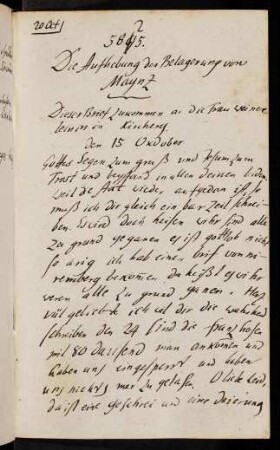 20 Oct
2
Die Aufhebung der Belagerung von
Maynz
Dieser Brief zukommen an die Frau
den 15 Oktober
Gottes Segen zum gruß und Jesum zum
Trost und beystand in allen deinen leiden,
weil die Post wieder aufgeden ist so
muß ich dir gleich ein bar Zeil schrei-
ben. Es wird doch heisen wihr sind alle
Zu grund gegangen es ist gottlob nicht
so arig ich hab einen brif von ni-
remberg bekomen da heist es wihr
weren alle zu grund ganen.
vill geliebte ich wil dir die warheid
schreiben den 24 sind die franzhosen
mit 80 daussend man ankomen und
haben uns eingesperrt und haben
uns nichts mer zu gelasen. O liebe
da ist eine geschrei und eine